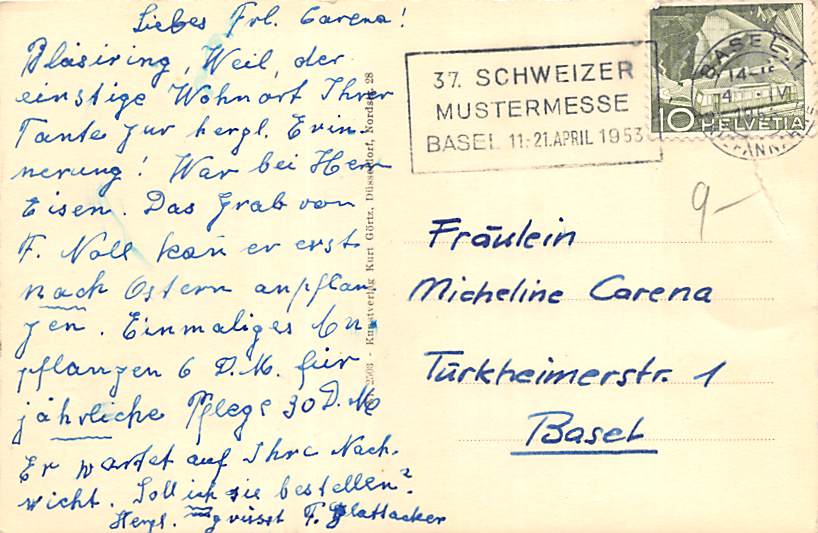 Liebes Frl. Carena!
Bläsiring, Weil, der
einstige Wohnort Ihrer
Tante zur hergl. Erin-
nerung! War bei Herrn
Eisen. Das Grab von
F. Noll kan er erst
nach Ostern anpflan
zen. Einmaliges An-
pflanzen 6 D.M. für
jährliche Pflege 30 D.M
Er wartet auf Ihre Nach-
richt. Soll ich sie bestellen?
Herzl. grüsst F. Plattacker
Kunstverlag Kurt Görtz, Düsseldorf, Nordstr. 28
37. SCHWEIZER
MUSTERMESSE
BASEL 11.-21. APRIL 1953
BASEL 1
10 HELVETIA
9-
Fräulein
Micheline Carena
Türkheimerstr. 1
Basel